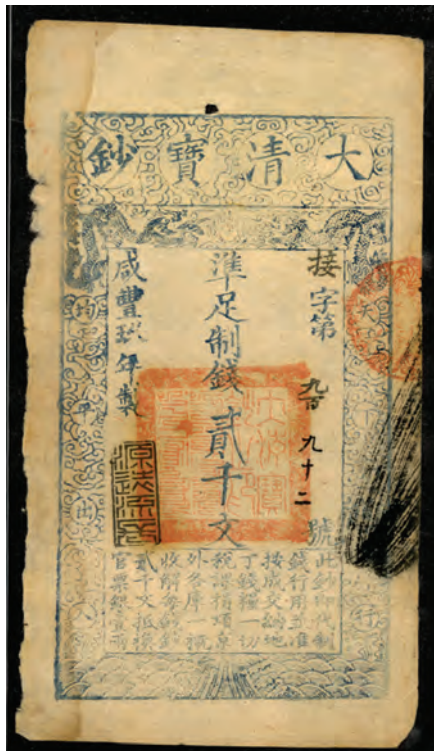 大清寶鈔
天下
行
接字第九百九十二號
準足制錢貳千文
咸豐玖年製
源遠流長
均平出入
此鈔即代制
錢行用並准
按成交納地
丁錢糧一切
稅課捐項京
外各庫一概
收解每錢鈔
貳千文抵換
官票銀壹兩